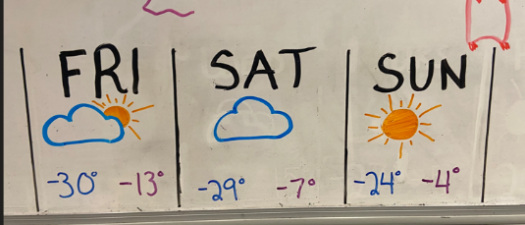 FRI SAT SUN
-30° -13° -29° -7° -24° -4°